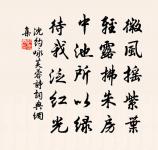 微風搖紫葉
輕露拂朱房
中池所以綠
待我泛紅光
沈約咏芙蓉詩詞典網
集